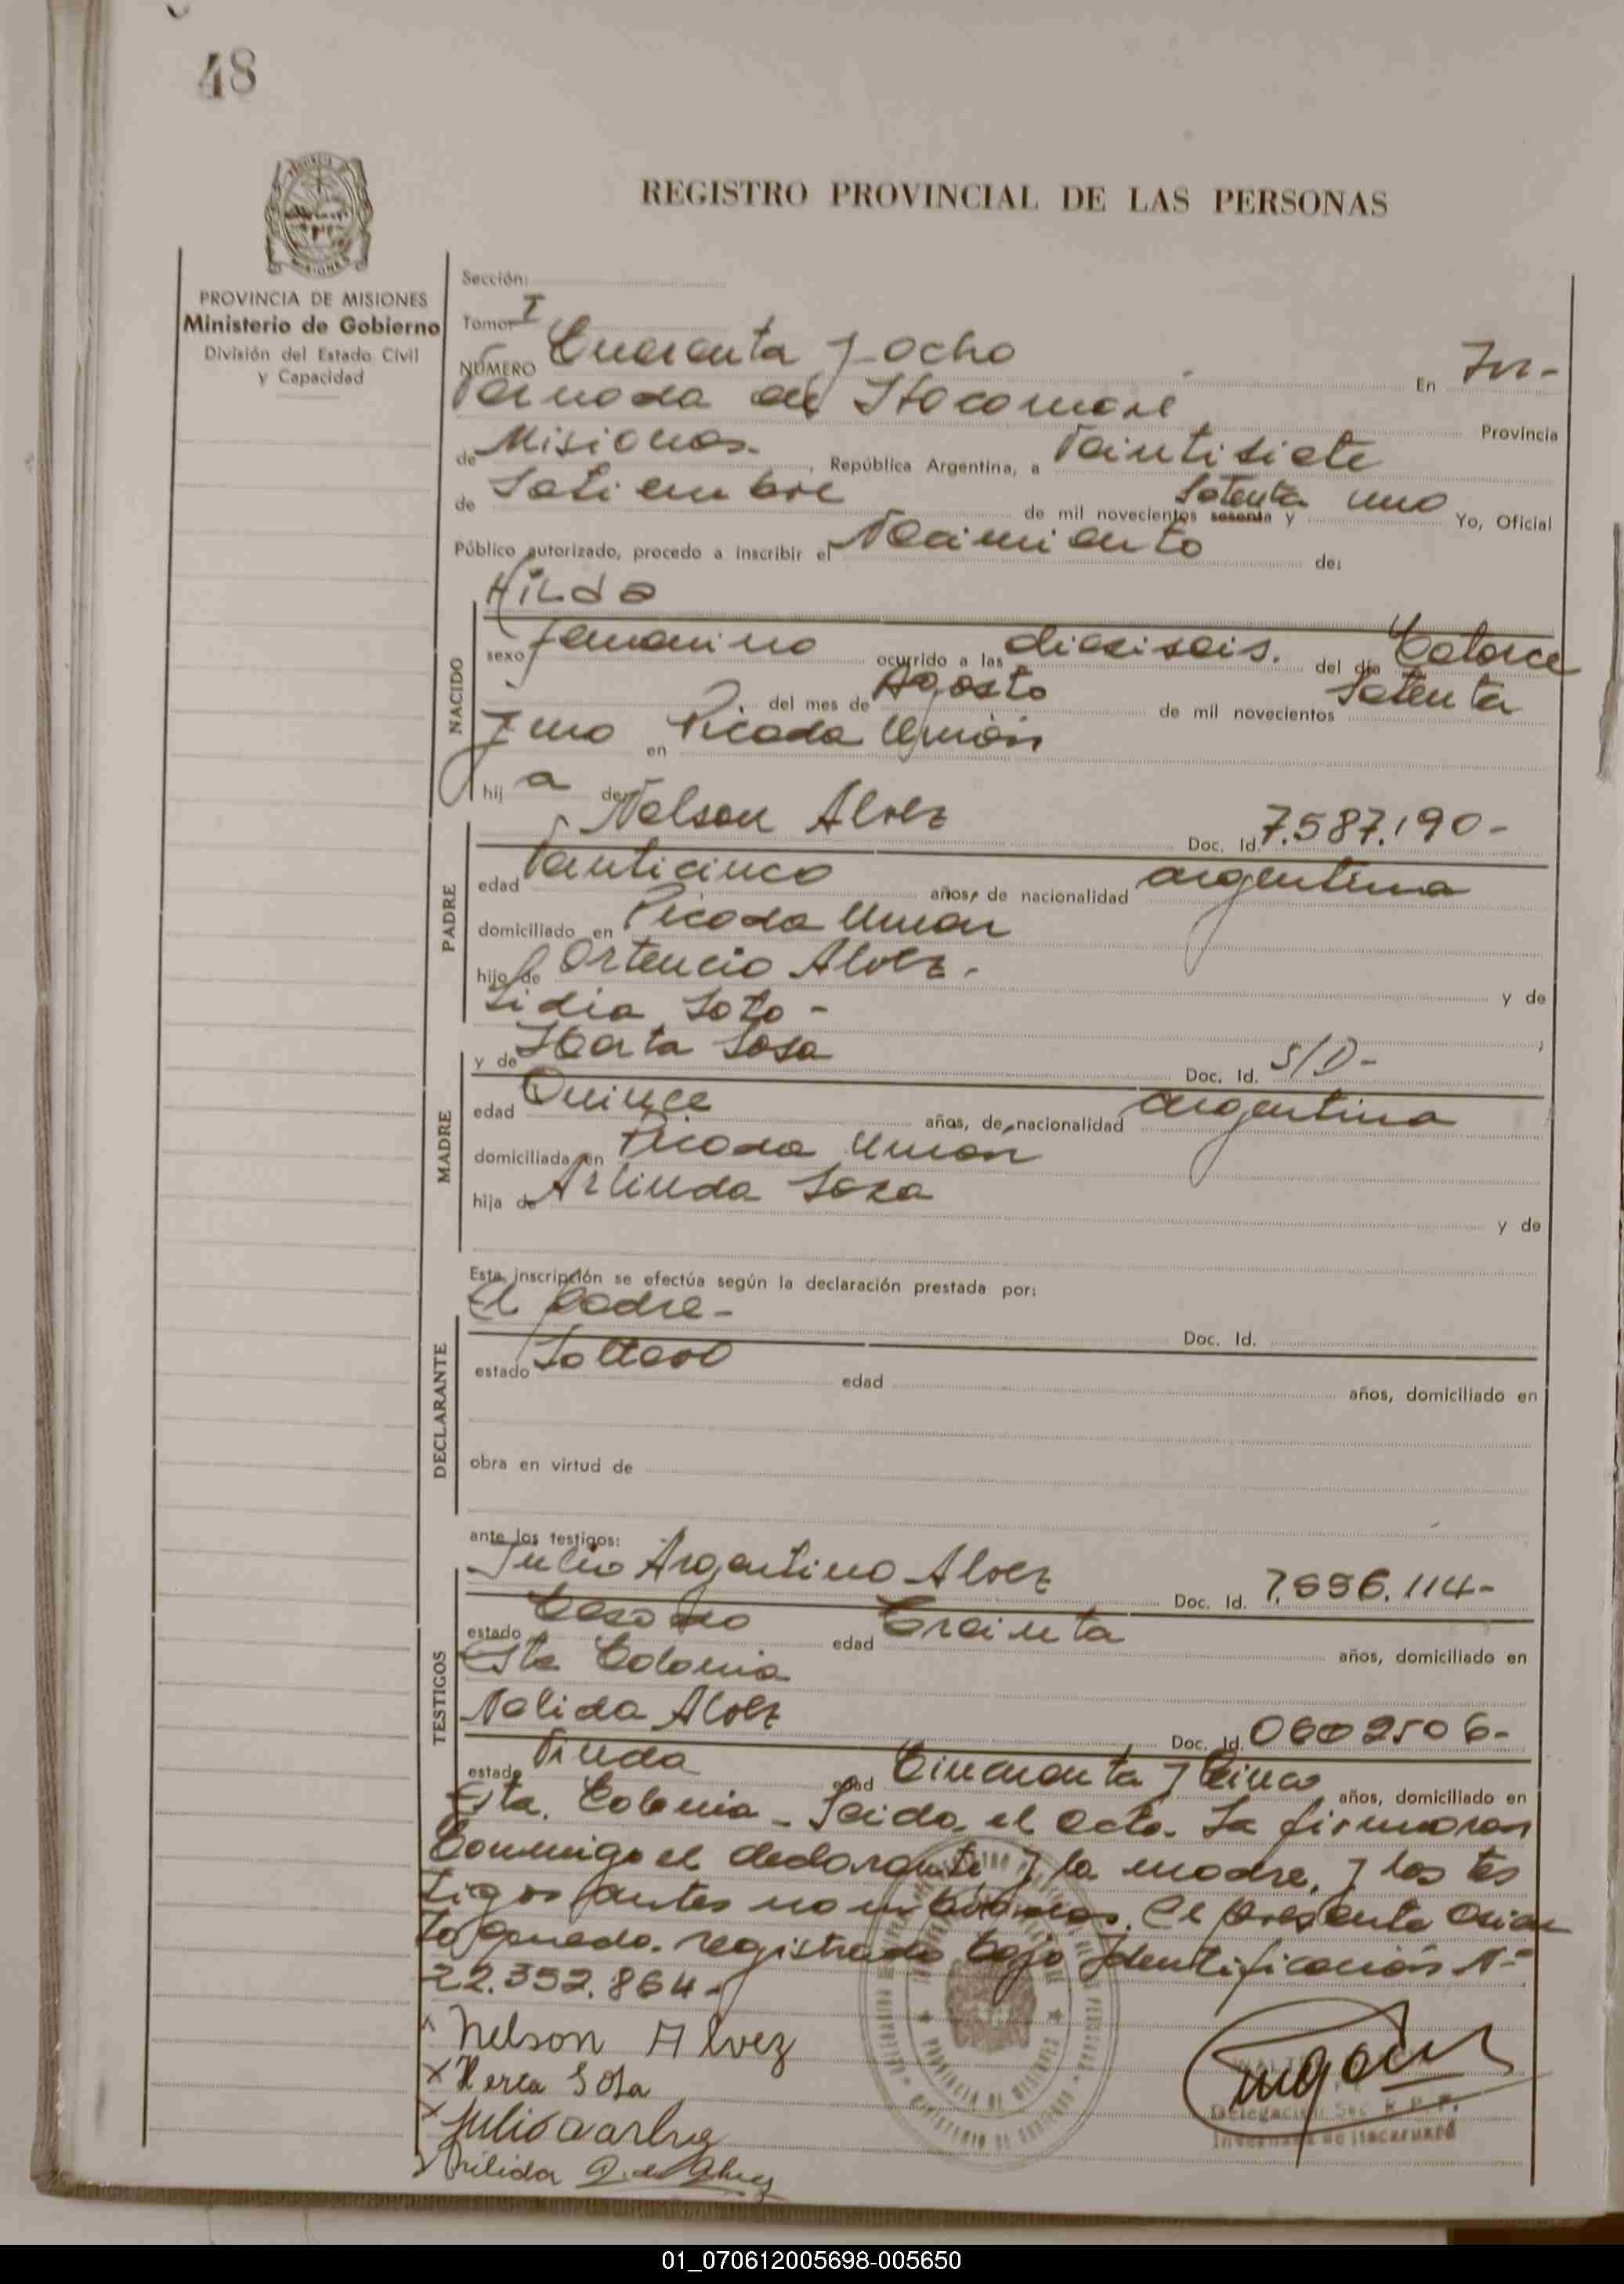 48
REGISTRO PROVINCIAL DE LAS PERSONAS
MISIONES
PROVINCIA DE MISIONES
Ministerio de Gobierno
División del Estado Civil
y Capacidad
Sección:
Tomo: I
NÚMERO Cuarenta y ocho En In-
vernada de Itacaruaré Provincia
de Misiones. , República Argentina, a Veintisiete
de Setiembre de mil novecientos sesenta y Setenta uno Yo, Oficial
Público autorizado, procedo a inscribir el Nacimiento de:
Hilda
NACIDO
sexo femenino ocurrido a las dieciseis. del día Catorce
del mes de Agosto de mil novecientos Setenta
y uno en Picada Unión
hij a de Nelson Alvez Doc. Id. 7.587.190-
PADRE
edad Veinticinco años, de nacionalidad argentina
domiciliado en Picada Union
hijo de Ortencio Alvez. y de
Lidia Soto -
y de Herta Sosa Doc. Id. S/D-
MADRE
edad Quince años, de nacionalidad argentina
domiciliada en Picada Union
hija de Arlinda Sosa y de
Esta inscripción se efectúa según la declaración prestada por:
El Padre - Doc. Id.
DECLARANTE
estado Soltero edad años, domiciliado en
obra en virtud de
ante los testigos:
Julio Argentino Alvez Doc. Id. 7.556.114-
TESTIGOS
estado Casado edad Treinta años, domiciliado en
Esta Colonia
Nelida Alvez Doc. Id. 0602506-
estado Viuda edad Cincuenta y Cinco años, domiciliado en
Esta. Colonia - Leida el acta. La firmaron
Conmigo el declarante y la madre, y los tes
tigos antes nombrados. El presente
queda. registrado bajo Identificación Nº
22.352.864-
Nelson Alvez
x Herta Sosa
x Julio a alvez
x Nilida
PROVINCIA DE MISIONES
MINISTERIO DE GOBIERNO
Delegación Sec. R.P.P.
Invernada de Itacaruaré
01_070612005698-005650